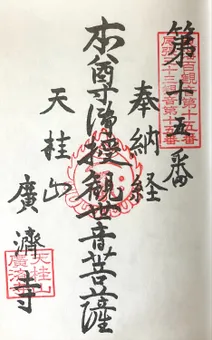 第十五番
百観音第十五番
十三観音第十五番
奉納経
本尊 観世音菩薩
天桂山
廣濟寺
天桂山
廣濟寺